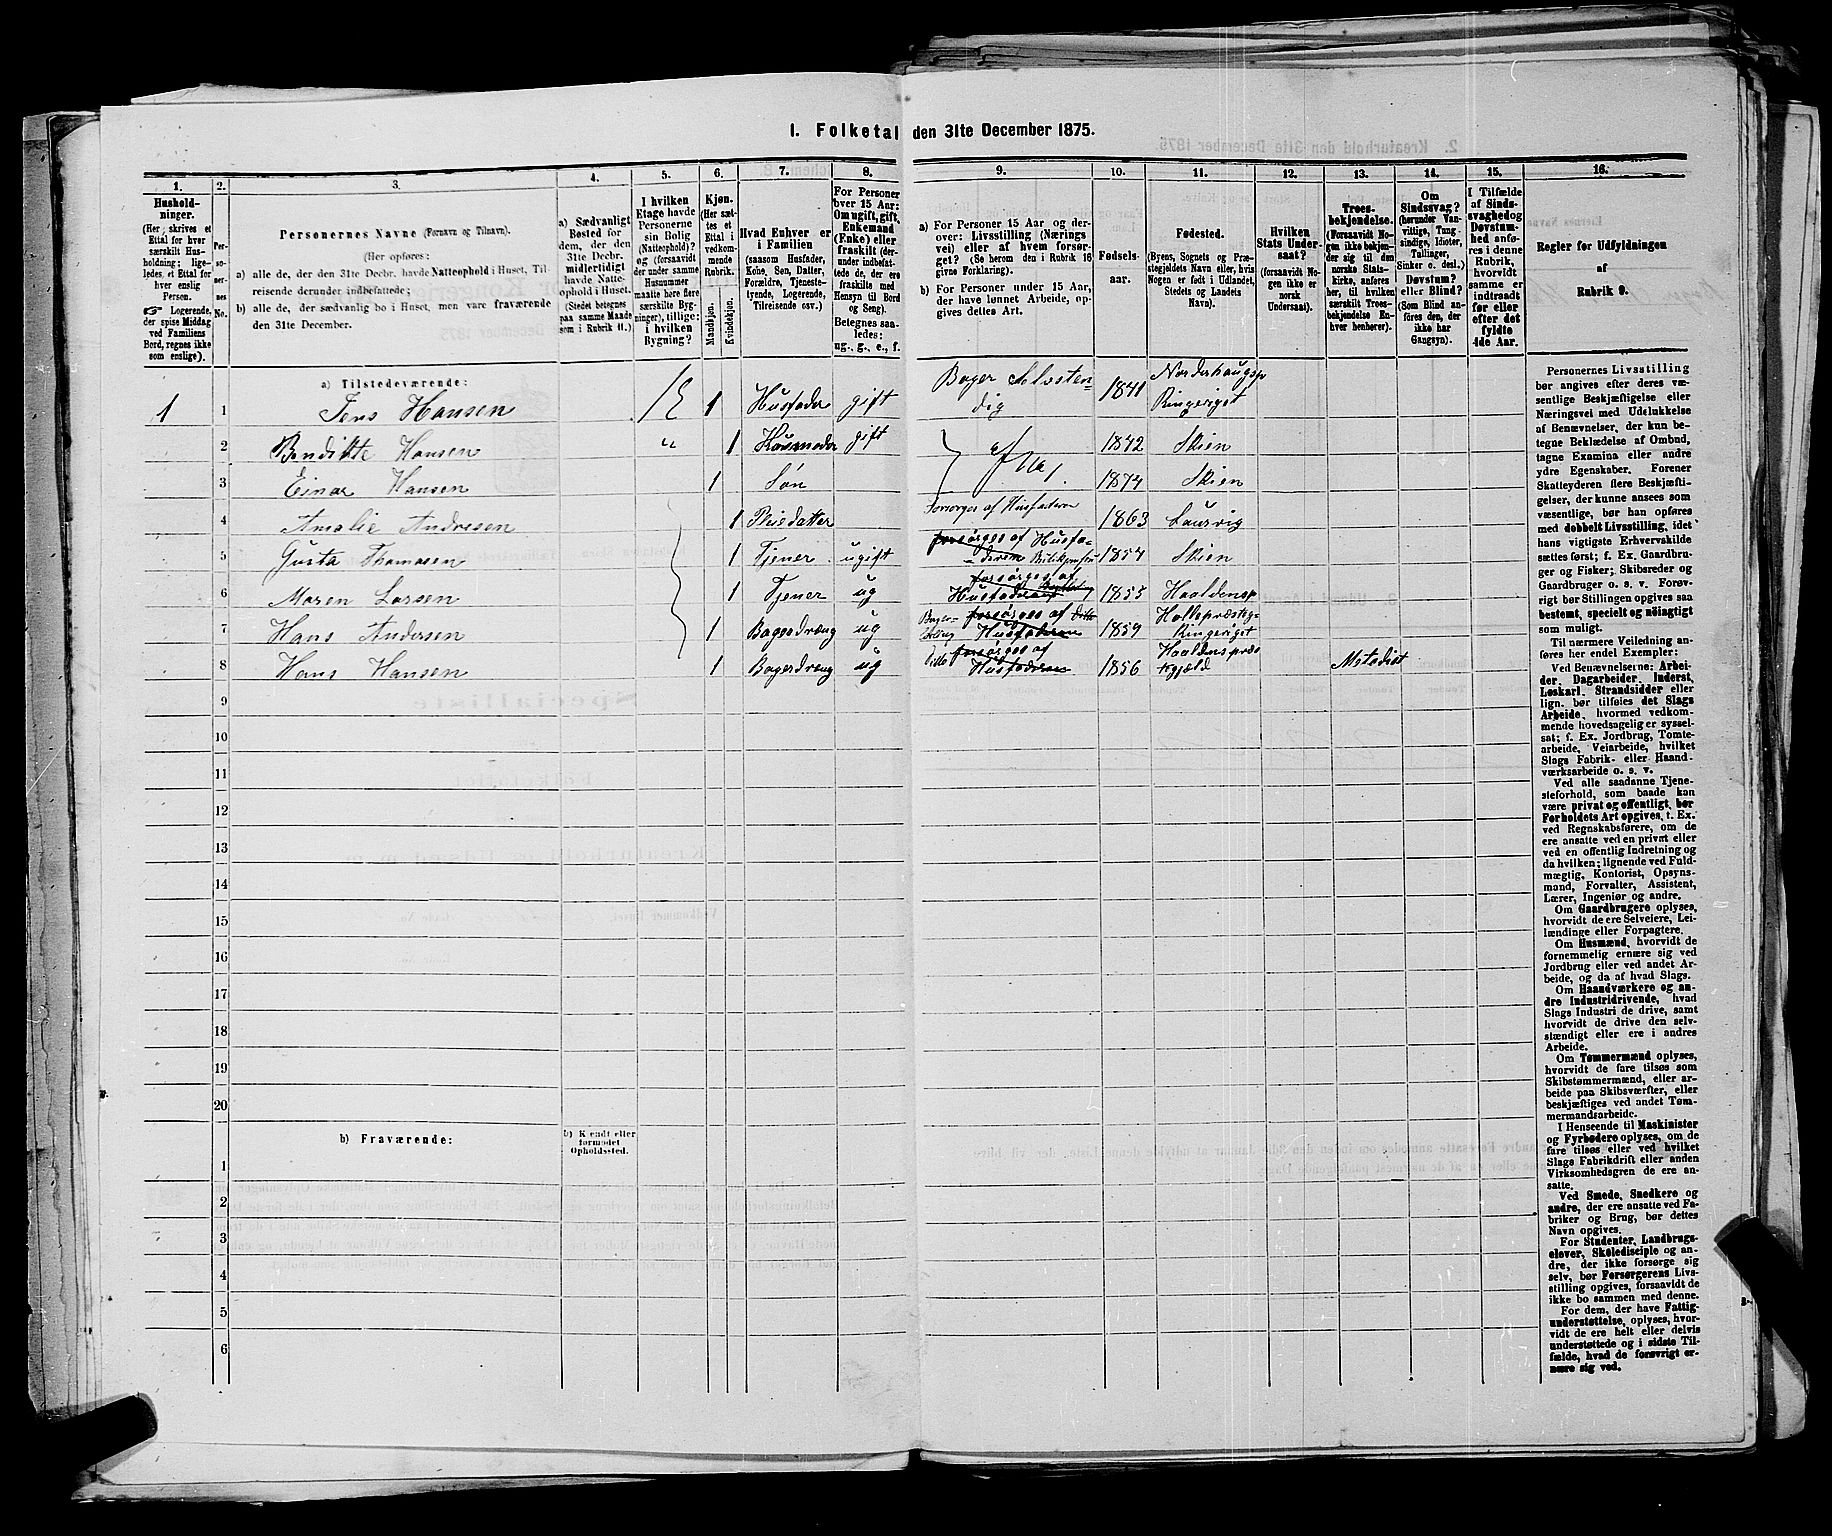 1. Folketal den 31te December 1875.
1.
2.
3.
4.
5.
6.
7.
8.
9.
10.
11.
12.
13.
14.
15.
16.
Hushold-
ninger.
(Her skrives et
Ettal for hver
særskilt Hus-
holdning; lige-
ledes, et Ettal for
hver enslig
Person.
☞ Logerende,
der spise Middag
ved Familiens
Bord, regnes ikke
som enslige).
Per-
so-
ner-
nes
No.
Personernes Navne (Fornavn og Tilnavn).
(Her opføres:
a) alle de, der den 31te Decbr. havde Natteophold i Huset, Til-
reisende derunder indbefattede;
b) alle de, der sædvanlig bo i Huset, men vare fraværende
den 31te December.
a) Sædvanligt
Bosted for
dem, der den
31te Decbr.
midlertidigt
havde Natte-
ophold i Huset.
(Stedet betegnes
paa samme Maade
som i Rubrik 11.)
I hvilken
Etage havde
Personerne
sin Bolig
(Natteophold)?
og (forsaavidt
der under samme
Husnummer
maatte høre flere
særskilte Byg-
ninger), tillige:
i hvilken
Bygning?
Kjøn.
(Her sæt-
tes et
Ettal i
vedkom-
mende
Rubrik.
Mandkjøn.
Kvindekjøn.
Hvad Enhver er
i Familien
(saasom Husfader,
Kone, Søn, Datter,
Forældre, Tjeneste-
tyende, Logerende,
Tilreisende osv.)
For Personer
over 15 Aar:
Om ugift, gift,
Enkemand
(Enke) eller
fraskilt (der-
under indbefat-
tede de, der ere
fraskilte med
Hensyn til Bord
og Seng).
Betegnes saa-
ledes:
ug., g., e., f.
a) For Personer 15 Aar og der-
over: Livsstilling (Nærings
vei) eller af hvem forsør-
get? (Se herom den i Rubrik 16
givne Forklaring).
b) For Personer under 15 Aar,
der have lønnet Arbeide, op-
gives dettes Art.
Fødsels-
aar.
Fødested.
(Byens, Sognets og Præ-
stegjeldets Navn eller, hvis
Nogen er født i Udlandet,
Stedets og Landets
Navn).
Hvilken
Stats Under-
saat?
(forsaavidt No-
gen ikke er
norsk
Undersaat).
Troes-
bekjendelse.
(Forsaavidt No-
gen ikke bekjen-
der sig til den
norske Stats-
kirke, anføres
her, til hvilken
særskilt Troes-
bekjendelse En-
hver henhører).
Om
Sindssvag?
(herunder Van-
vittige, Tung-
sindige, Idioter,
Tullinger,
Sinker o. desl.)
Døvstum?
eller Blind?
(Som Blind an-
føres den, der
ikke har
Gangsyn).
I Tilfælde
af Sinds-
svaghed og
Døvstum-
hed anfø-
res i denne
Rubrik,
hvorvidt
samme er
indtraadt
før eller
efter det
fyldte
4de Aar.
Regler for Udfyldningen
af
Rubrik 9.
a) Tilstedeværende:
1 1 Jens Hansen 1 E 1 Husfader gift Bager Selvsten-
dig 1841 Norderhaugsp
Ringeriget
2 Bendikte Hansen " 1 Husmoder gift 1842 Skien
3 Einar Hansen 1 Søn 1874 Skien
4 Amalie Andresen 1 Pleiedatter Forsørges af Husfaderen 1863 Laurvig
5 Gusta Thomasen 1 Tjener ugift forsørges af Husfa-
deren 1854 Skien
6 Maren Larsen 1 Tjener ug forsørges af
Husfaderen 1855 Haaldensp
7 Hans Andersen 1 Bagerdræng ug Bager-
dræng forsørges af Ditto
Husfaderen 1859 Hollepræsteg-
Ringeriget
8 Hans Hansen 1 Bagerdræng ug Ditto forsørges af
Husfaderen 1856 Haaldenspræs
tgjæld Metodist
9
10
11
12
13
14
15
16
17
18
19
20
b) Fraværende:
b) Kjendt eller
formodet
Opholdssted.
1
2
3
4
5
6
Personernes Livsstilling
bør angives efter deres væ-
sentlige Beskjæftigelse eller
Næringsvei med Udelukkelse
af Benævnelser, der kun be-
tegne Beklædelse af Ombud,
tagne Examina eller andre
ydre Egenskaber. Forener
Skatteyderen flere Beskjæfti-
gelser, der kunne ansees som
væsentlige, bør han opføres
med dobbelt Livsstilling, idet
hans vigtigste Erhvervskilde
sættes først; f. Ex. Gaardbru-
ger og Fisker; Skibsreder og
Gaardbruger o. s. v. Forøv-
rigt bør Stillingen opgives saa
bestemt, specielt og nøiagtigt
som muligt.
Til nærmere Veiledning an-
føres her endel Exempler:
Ved Benævnelserne: Arbei-
der, Dagarbeider, Inderst,
Løskarl, Strandsidder eller
lign. bør tilføies det Slags
Arbeide, hvormed vedkom-
mende hovedsagelig er syssel-
sat; f. Ex. Jordbrug, Tomte-
arbeide, Veiarbeide, hvilket
Slags Fabrik- eller Haand-
værksarbeide o. s. v.
Ved alle saadanne Tjene-
steforhold, som baade kan
være privat og offentligt, bør
Forholdets Art opgives, t. Ex.
ved Regnskabsførere, om de
ere ansatte ved en privat eller
ved en offentlig Indretning og
da hvilken; lignende ved Fuld-
mægtig, Kontorist, Opsyns-
mand, Forvalter, Assistent,
Lærer, Ingeniør og andre.
Om Gaardbrugere oplyses,
hvorvidt de ere Selveiere, Lei-
lændinge eller Forpagtere.
Om Husmænd, hvorvidt de
fornemmelig ernære sig ved
Jordbrug eller ved andet Ar-
beide, og da af hvad Slags.
Om Haandværkere og an-
dre Industridrivende, hvad
Slags Industri de drive, samt
hvorvidt de drive den selv-
stændigt eller ere i andres
Arbeide.
Om Tømmermænd oplyses,
hvorvidt de fare tilsøs som
Skibstømmermænd, eller ar-
beide paa Skibsværfter, eller
beskjæftiges ved andet Tøm-
mermandsarbeide.
I Henseende til Maskinister
og Fyrbødere oplyses, om de
fare tilsøs eller ved hvilket
Slags Fabrikdrift eller anden
Virksomhedsgren de ere an-
satte.
Ved Smede, Snedkere og
andre, der ere ansatte ved Fa-
briker og Brug, bør dettes
Navn opgives.
For Studenter, Landbrugs-
elever, Skoledisciple og an-
dre, der ikke forsørge sig
selv, bør Forsørgerens Livs-
stilling opgives, forsaavidt de
ikke bo sammen med denne.
For dem, der have Fattig-
understøttelse, oplyses, hvor-
vidt de ere helt eller delvis
understøttede og i sidste Til-
fælde, hvad de forøvrigt er-
nære sig ved.